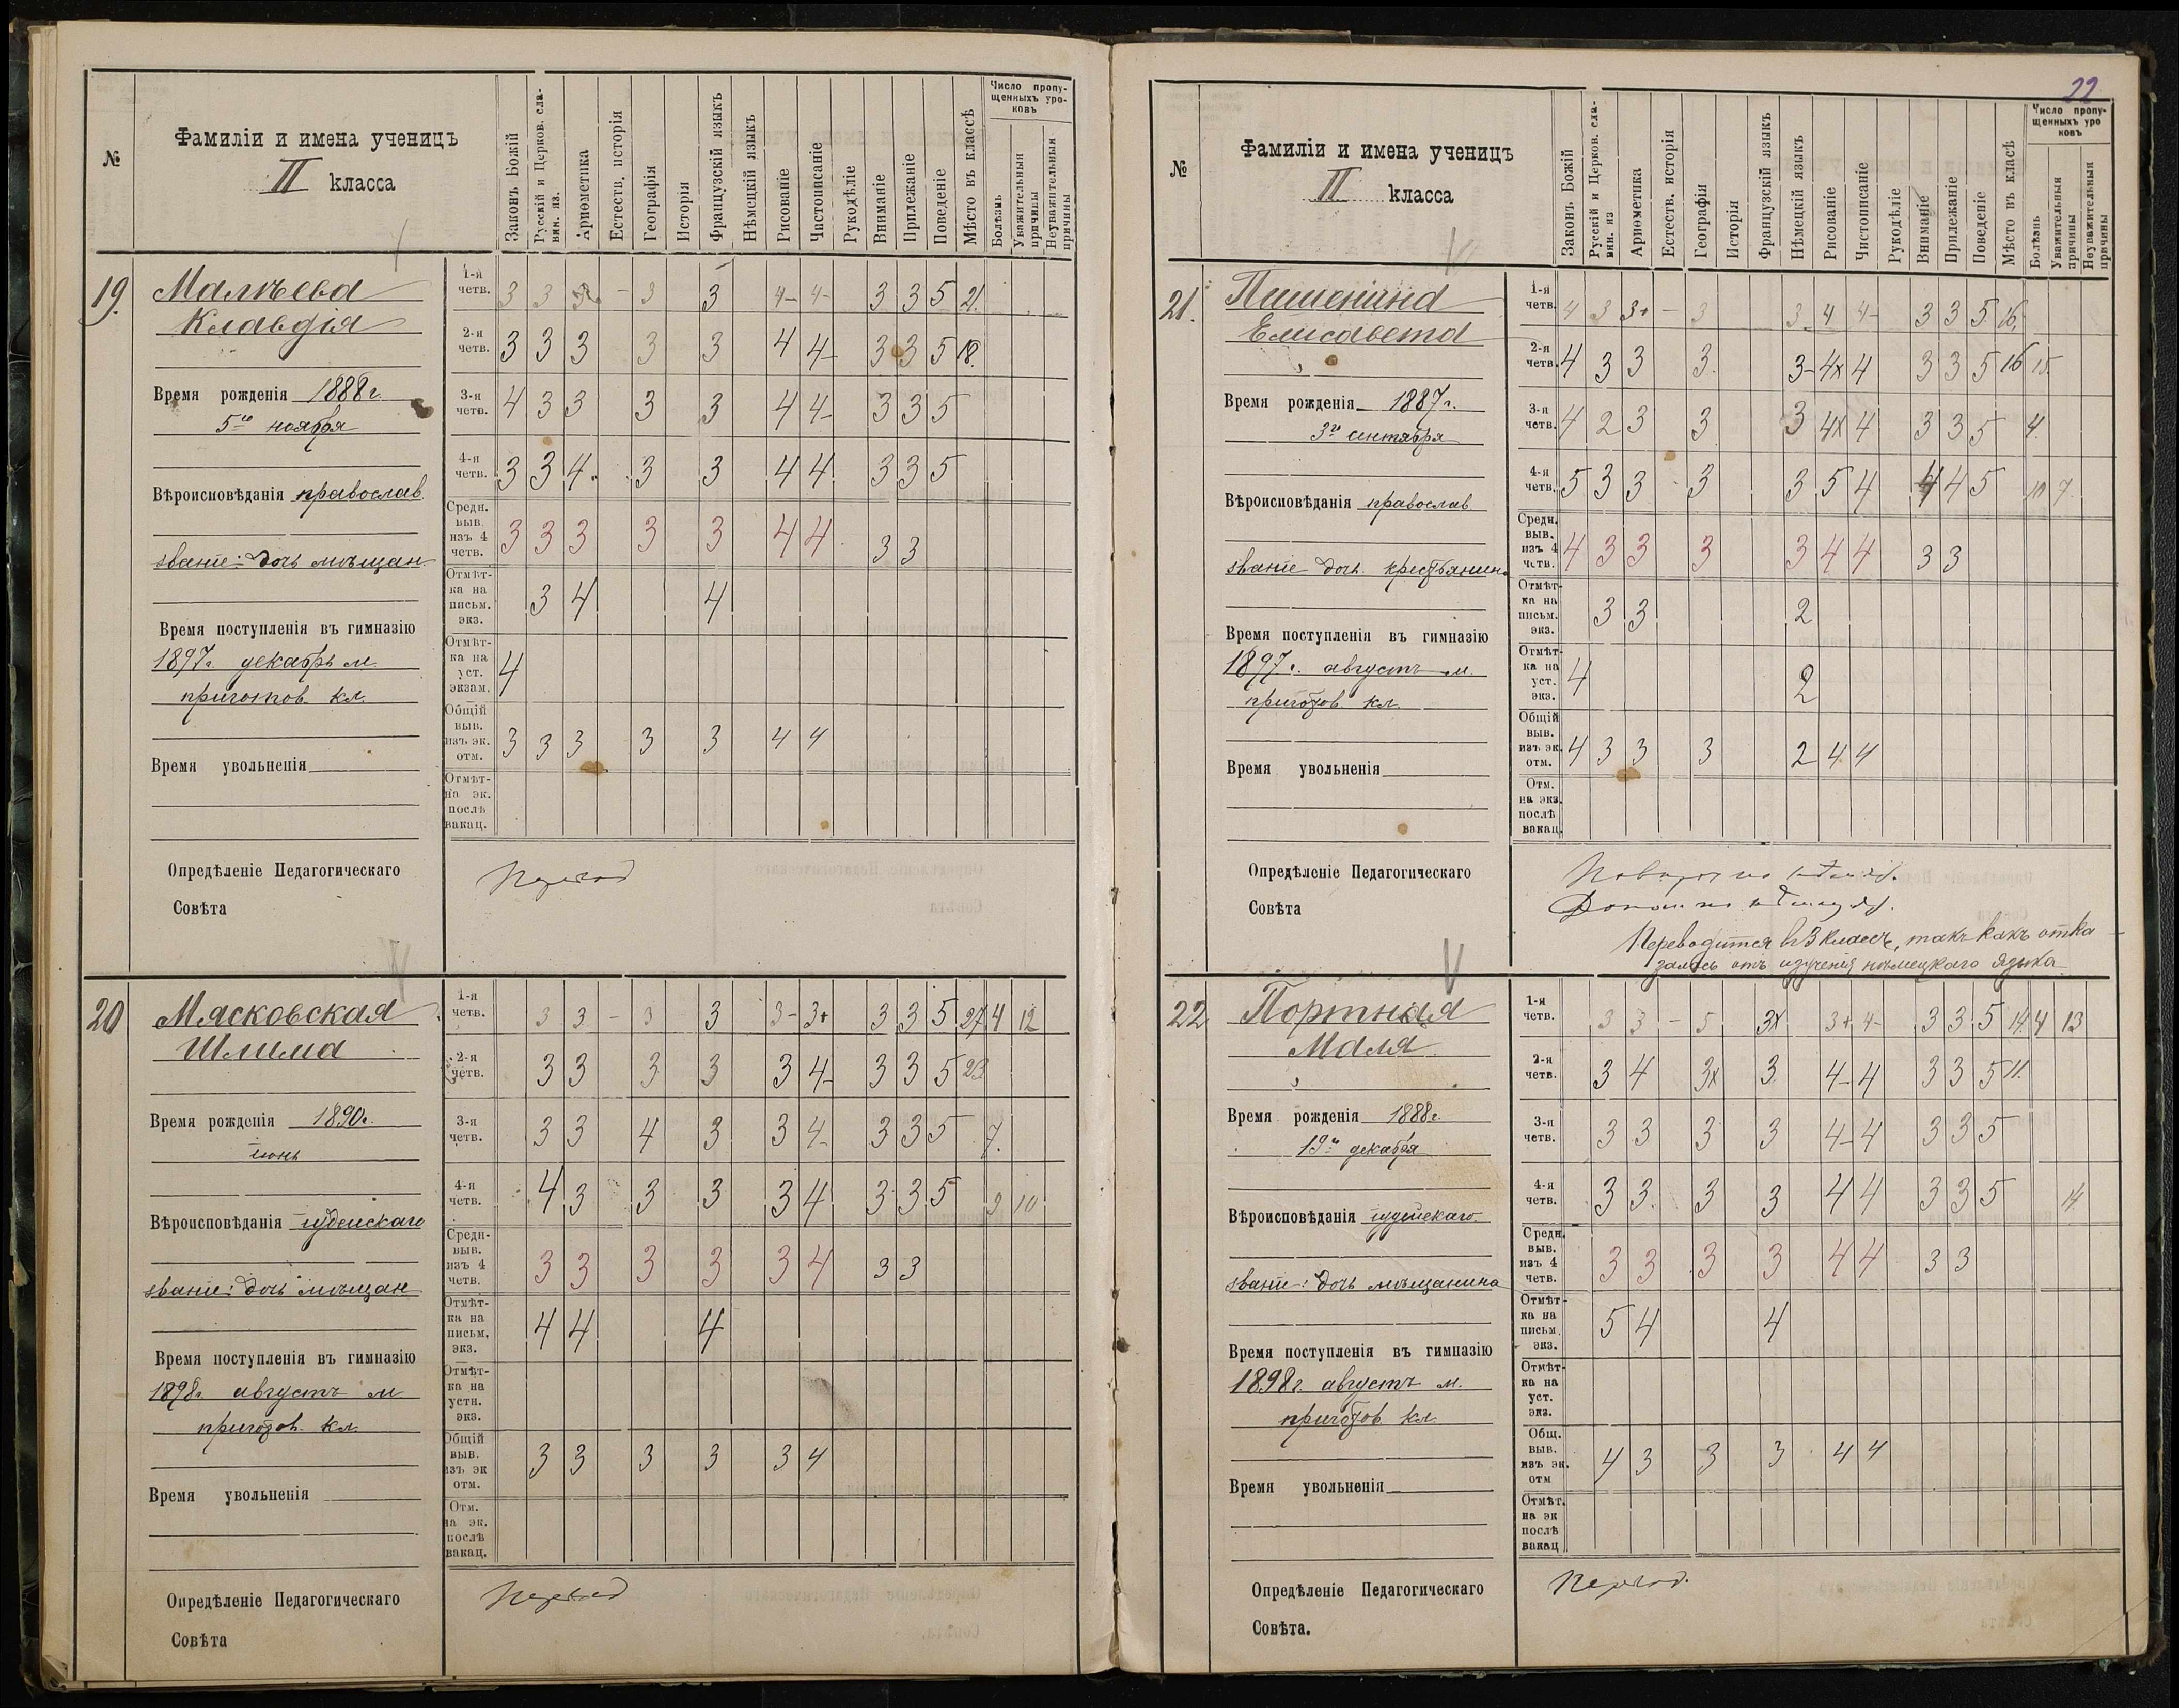 №
Фамиліи и имена ученицъ
II класса
Законъ Божій
Русскій и Церков. сла-
вян. яз.
Ариѳметика
Естеств. исторія
Географія
Исторія
Французскій языкъ
Нѣмецкій языкъ
Рисованіе
Чистописаніе
Рукодѣліе
Вниманіе
Прилежаніе
Поведеніе
Мѣсто въ классѣ
Число пропу-
щенныхъ уро-
ковъ
Болѣзнь
Уважительныя
причины
Неуважительныя
причины
19.
Малѣева
Клавдія
Время рожденія 1888 г.
5го ноября
Вѣроисповѣданія православ.
званіе: дочь мѣщан.
Время поступленія въ гимназію
1897 г. декабрь м.
приготов. кл.
Время увольненія
1-я четв. 3 3 – 3 3 4- 4- 3 3 5 21.
2-я четв. 3 3 3 3 3 4 4- 3 3 5 18.
3-я четв. 4 3 3 3 3 4 4- 3 3 5
4-я четв. 3 3 4. 3 3 4 4 3 3 5
Средн. выв. изъ 4 четв. 3 3 3 3 3 4 4 3 3
Отмѣт-ка на письм. экз. 3 4 4
Отмѣт-ка на уст. экзам. 4
Общій выв. изъ эк. отм. 3 3 3 3 3 4 4
Отмѣт-на эк. послѣ вакац.
Опредѣленіе Педагогическаго
Совѣта
Переход
20
Мясковская
Шлима
Время рожденія 1890 г.
іюнь
Вѣроисповѣданія іудейскаго
званіе: дочь мѣщан.
Время поступленія въ гимназію
1898 г. августъ м
приготов. кл.
Время увольненія
1-я четв. 3 3 – 3 3 3- 3+ 3 3 5 27 4 12
2-я четв. 3 3 3 3 3 4- 3 3 5 23
3-я четв. 3 3 4 3 3 4- 3 3 5 7.
4-я четв. 4 3 3 3 3 4 3 3 5 9 10
Средн- выв. изъ 4 четв. 3 3 3 3 3 4 3 3
Отмѣт-ка на письм. экз. 4 4 4
Отмѣт-ка на устн. экз.
Общій выв. изъ эк отм. 3 3 3 3 3 4
Отм. на эк. послѣ вакац.
Опредѣленіе Педагогическаго
Совѣта
Переход
22
№
Фамиліи и имена ученицъ
II класса
Законъ Божій
Русскій и Церков. сла-
вян. яз
Ариѳметика
Естеств. исторія
Географія
Исторія
Французскій языкъ
Нѣмецкій языкъ
Рисованіе
Чистописаніе
Рукодѣліе
Вниманіе
Прилежаніе
Поведеніе
Мѣсто въ класѣ
Число пропу-
щенныхъ уро
ковъ
Болѣзнь
Уважительныя
причины
Неуважительныя
причины
21.
Пшенина
Елисавета
Время рожденія 1887 г.
3го сентября
Вѣроисповѣданія православ.
званіе дочь крестьянин.
Время поступленія въ гимназію
1897 г. августъ м.
приготов кл.
Время увольненія
1-я четв. 4 3 3+ – 3 3 4 4- 3 3 5 16.
2-я четв. 4 3 3 3. 3- 4x 4 3 3 5 16 15.
3-я четв. 4 2 3 3 3 4x 4 3 3 5 4.
4-я четв. 5 3 3 3 3 5 4 4 4 5 10 7.
Средн. выв. изъ 4 четв. 4 3 3 3 3 4 4 3 3
Отмѣт-ка на письм. экз. 3 3 2
Отмѣт-ка на уст. экз. 4 2
Общій выв. изъ эк. отм. 4 3 3 3 2 4 4
Отм. на экз. послѣ вакац.
Опредѣленіе Педагогическаго
Совѣта
Переводится въ 3 классъ, такъ какъ отка
залась отъ изученія нѣмецкаго языка
22
Портная
Маля
Время рожденія 1888 г.
19го декабря
Вѣроисповѣданія іудейскаго.
званіе: дочь мѣщанина
Время поступленія въ гимназію
1898 г. августъ м.
приготов кл.
Время увольненія
1-я четв. 3 3 – 5 3x 3+ 4- 3 3 5 14 4 13
2-я четв. 3 4 3x 3 4- 4 3 3 5 11.
3-я четв. 3 3 3 3 4- 4 3 3 5
4-я четв. 3 3. 3 3 4 4 3 3 5 14.
Средн. выв. изъ 4 четв. 3 3 3 3 4 4 3 3
Отмѣт-ка на письм. экз. 5 4 4
Отмѣт-ка на уст. экз.
Общ. выв. изъ эк. отм 4 3 3 3 4 4
Отмѣт. на эк послѣ вакац
Опредѣленіе Педагогическаго
Совѣта.
Переход.